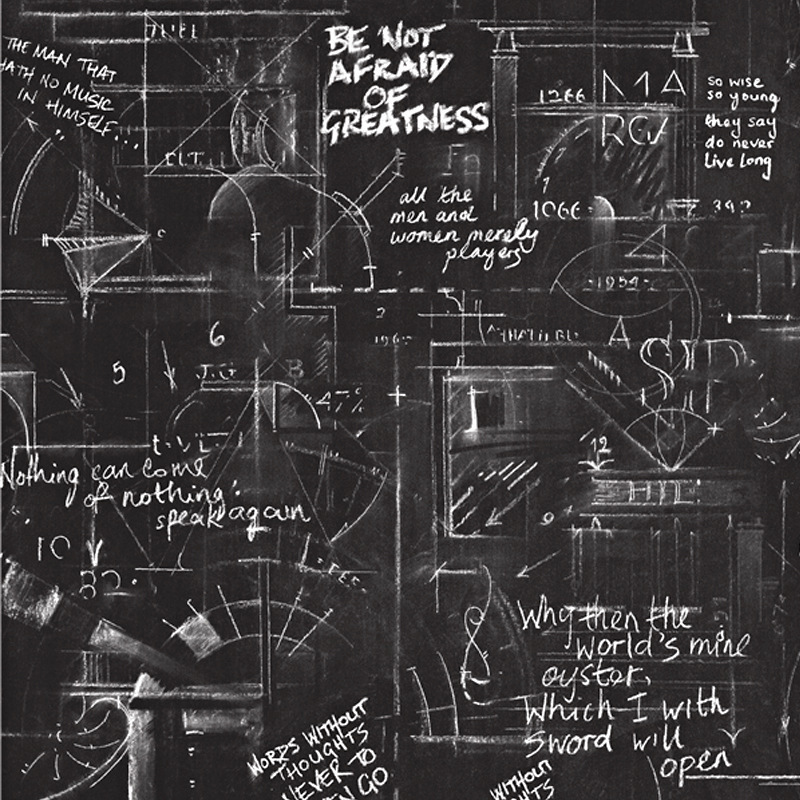 THE MAN THAT
HATH NO MUSIC
IN HIMSELF...
BE NOT
AFRAID
OF
GREATNESS
so wise
so young
they say
do never
Live long
1266
1066
all the
men and
women merely
players
1954
6
5
J.G
B
A
12
Nothing can come
of nothing:
speak again
10
Why then the
world's mine
oyster,
Which I with
sword will
open
WORDS WITHOUT
THOUGHTS
NEVER TO
GO
WITHOUT